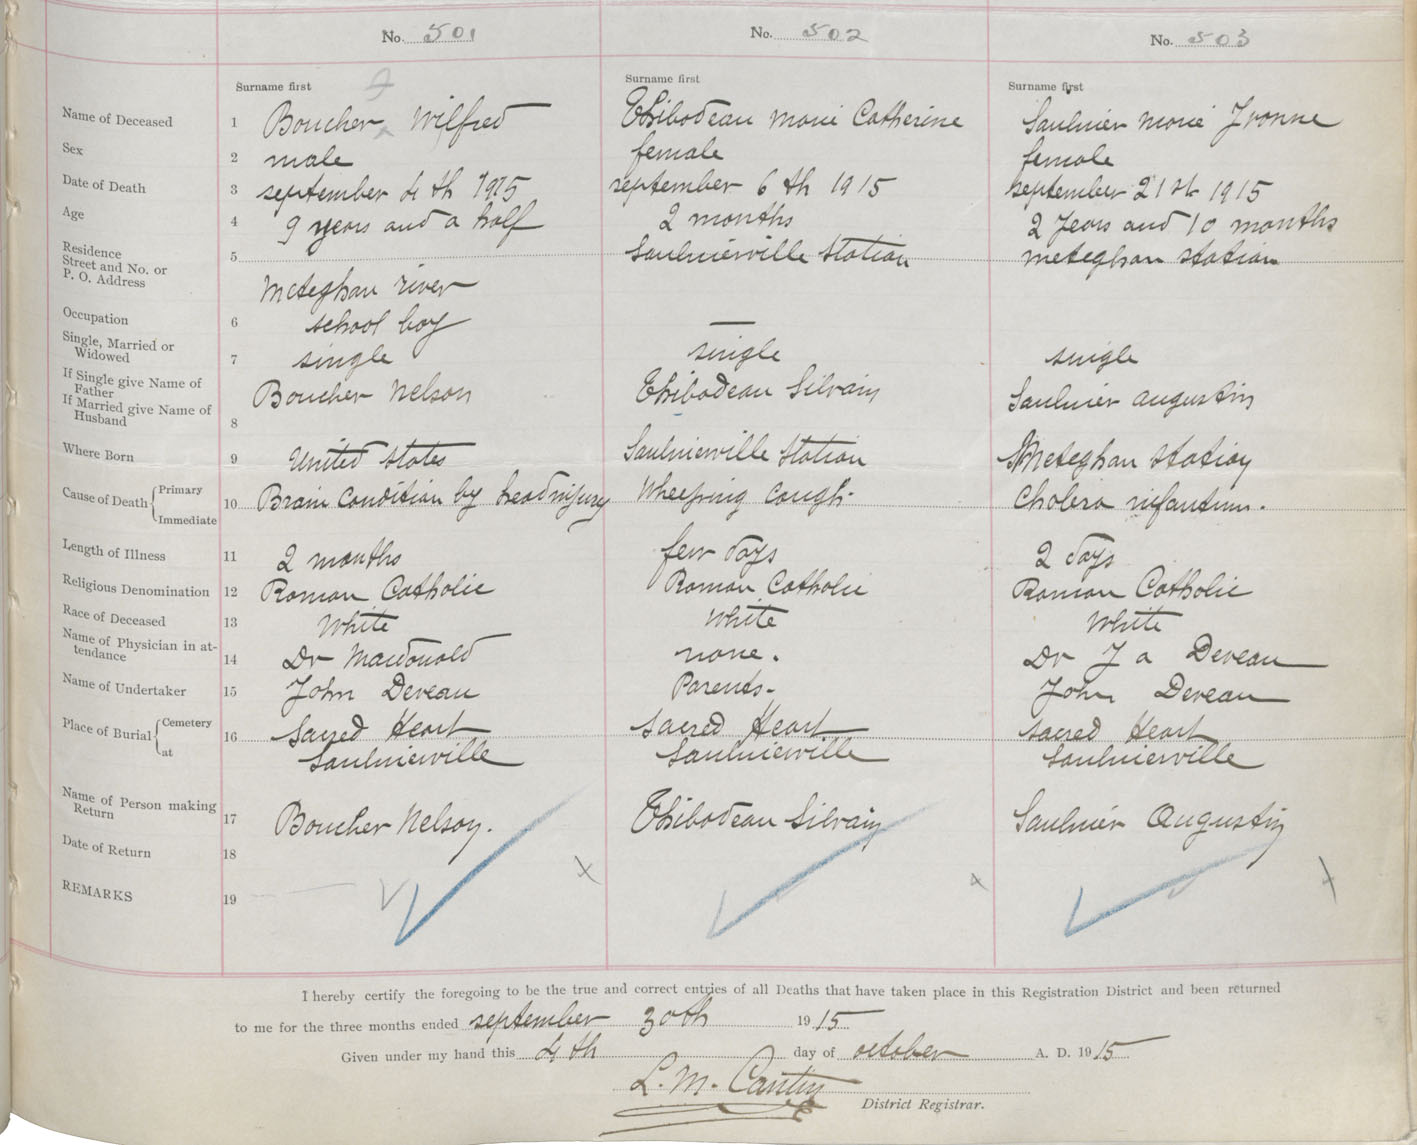 No. 501 No. 502 No. 503
Surname first Surname first Surname first
Name of Deceased 1 Boucher Wilfred Thibodeau Marie Catherine Saulnier Marie Yvonne
Sex 2 male female female
Date of Death 3 september 4th 1915 september 6th 1915 september 21st 1915
Age 4 9 years and a half 2 months 2 Years and 10 months
Residence
Street and No. or
P. O. Address 5 Meteghan river Saulnierville Station meteghan station
Occupation 6 school boy —
Single, Married or
Widowed 7 single single single
If Single give Name of
Father Boucher Nelson Thibodeau Silvain Saulnier augustin
If Married give Name of
Husband 8
Where Born 9 United states Saulnierville Station Meteghan station
Cause of Death { Primary
Immediate 10 Brain condition by head injury Wheeping cough. Cholera infantum.
Length of Illness 11 2 months few days 2 days
Religious Denomination 12 Roman Catholic Roman Catholic Roman Catholic
Race of Deceased 13 White White White
Name of Physician in at-
tendance 14 Dr Macdonald none. Dr J a Deveau
Name of Undertaker 15 John Deveau Parents. John Deveau
Place of Burial { Cemetery 16 Sacred Heart Sacred Heart sacred Heart
at Saulnierville Saulnierville Saulnierville
Name of Person making
Return 17 Boucher Nelson. Thibodeau Silvain Saulnier Augustin
Date of Return 18
REMARKS 19
I hereby certify the foregoing to be the true and correct entries of all Deaths that have taken place in this Registration District and been returned
to me for the three months ended september 30th 1915
Given under my hand this 4th day of october A. D. 1915
L. M. Cantin
District Registrar.